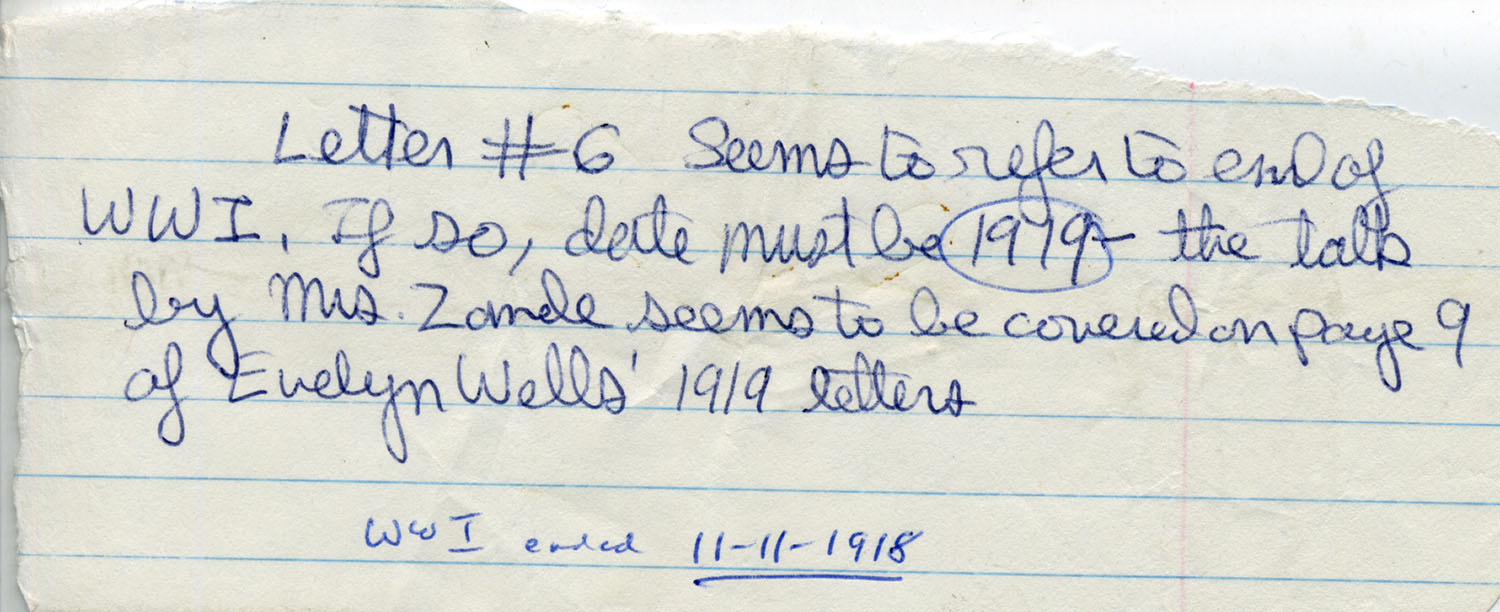 Letter #6 Seems to refer to end of
WWI. If so, date must be 1919- the talk
by Mrs. Zande seems to be covered on page 9
of Evelyn Wells' 1919 letters
WWI ended 11-11-1918